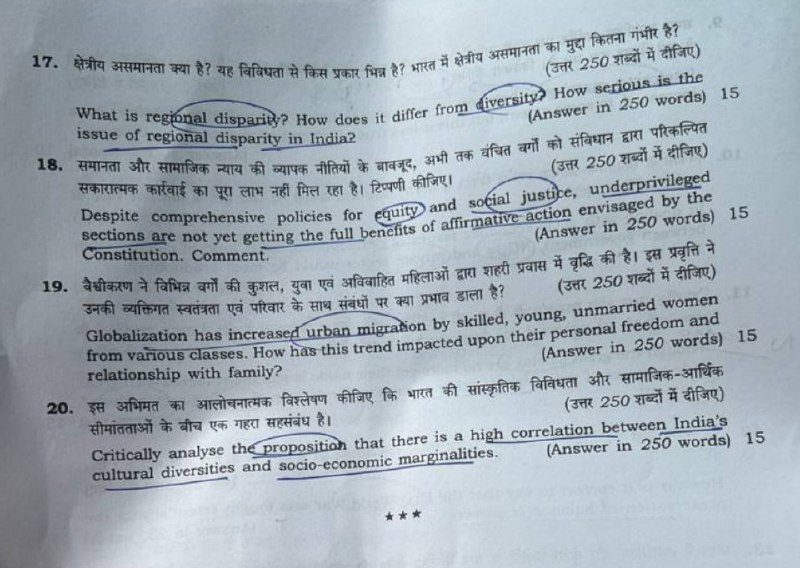 17. क्षेत्रीय असमानता क्या है? यह विविधता से किस प्रकार भिन्न है? भारत में क्षेत्रीय असमानता का मुद्दा कितना गंभीर है?
(उत्तर 250 शब्दों में दीजिए)
What is regional disparity? How does it differ from diversity? How serious is the
issue of regional disparity in India? (Answer in 250 words) 15
18. समानता और सामाजिक न्याय की व्यापक नीतियों के बावजूद, अभी तक वंचित वर्गों को संविधान द्वारा परिकल्पित
सकारात्मक कार्रवाई का पूरा लाभ नहीं मिल रहा है। टिप्पणी कीजिए। (उत्तर 250 शब्दों में दीजिए)
Despite comprehensive policies for equity and social justice, underprivileged
sections are not yet getting the full benefits of affirmative action envisaged by the
Constitution. Comment. (Answer in 250 words) 15
19. वैश्वीकरण ने विभिन्न वर्गों की कुशल, युवा एवं अविवाहित महिलाओं द्वारा शहरी प्रवास में वृद्धि की है। इस प्रवृत्ति ने
उनकी व्यक्तिगत स्वतंत्रता एवं परिवार के साथ संबंधों पर क्या प्रभाव डाला है? (उत्तर 250 शब्दों में दीजिए)
Globalization has increased urban migration by skilled, young, unmarried women
from various classes. How has this trend impacted upon their personal freedom and
relationship with family? (Answer in 250 words) 15
20. इस अभिमत का आलोचनात्मक विश्लेषण कीजिए कि भारत की सांस्कृतिक विविधता और सामाजिक-आर्थिक
सीमांतताओं के बीच एक गहरा सहसंबंध है। (उत्तर 250 शब्दों में दीजिए)
Critically analyse the proposition that there is a high correlation between India's
cultural diversities and socio-economic marginalities. (Answer in 250 words) 15
★★★